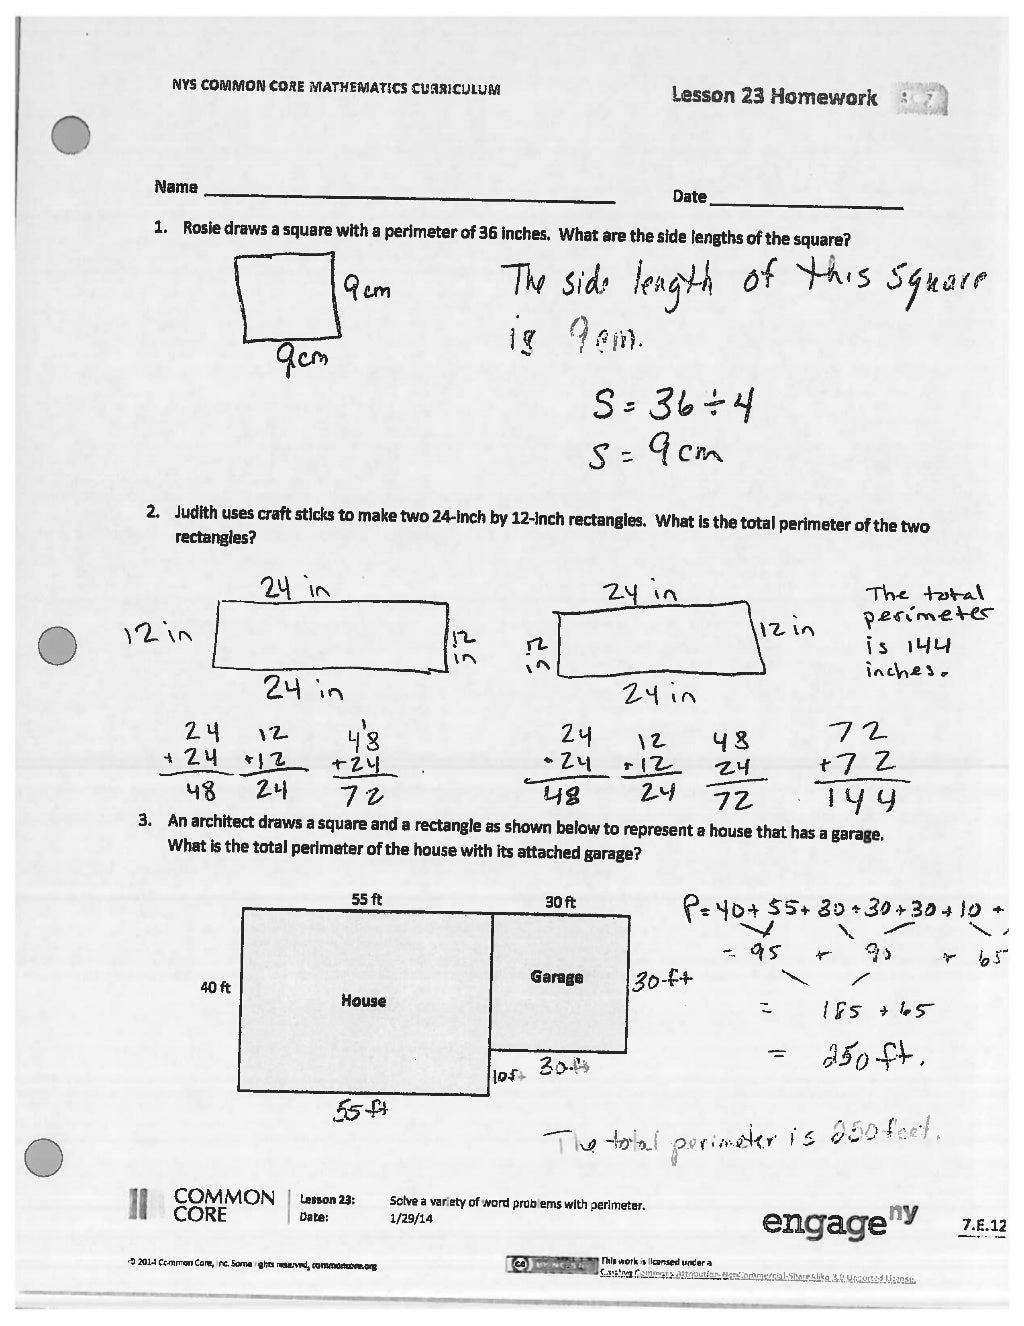 NYS COMMON CORE MATHEMATICS CURRICULUM
Lesson 23 Homework
Name
Date
1. Rosie draws a square with a perimeter of 36 inches. What are the side lengths of the square?
9cm
9cm
The side length of this square
is 9cm.
S = 36 ÷ 4
S = 9cm
2. Judith uses craft sticks to make two 24-inch by 12-inch rectangles. What is the total perimeter of the two
rectangles?
24 in
12 in
12
in
24 in
24 in
12
in
12 in
24 in
The total
perimeter
is 144
inches.
24 12 48
+ 24 +12 +24
48 24 72
24 12 48 72
+ 24 +12 24 +72
48 24 72 144
3. An architect draws a square and a rectangle as shown below to represent a house that has a garage.
What is the total perimeter of the house with its attached garage?
55 ft
30 ft
40 ft
House
Garage
30 ft
10ft
30 ft
55 ft
P = 40 + 55 + 30 + 30 + 30 + 10 +
= 95 + 90 + 65
= 185 + 65
= 250 ft.
The total perimeter is 250 feet.
COMMON
CORE
Lesson 23: Solve a variety of word problems with perimeter.
Date: 1/29/14
engageny
7.E.12
© 2014 Common Core, Inc. Some rights reserved. commoncore.org
This work is licensed under a
Creative Commons Attribution-NonCommercial-ShareAlike 3.0 Unported License.